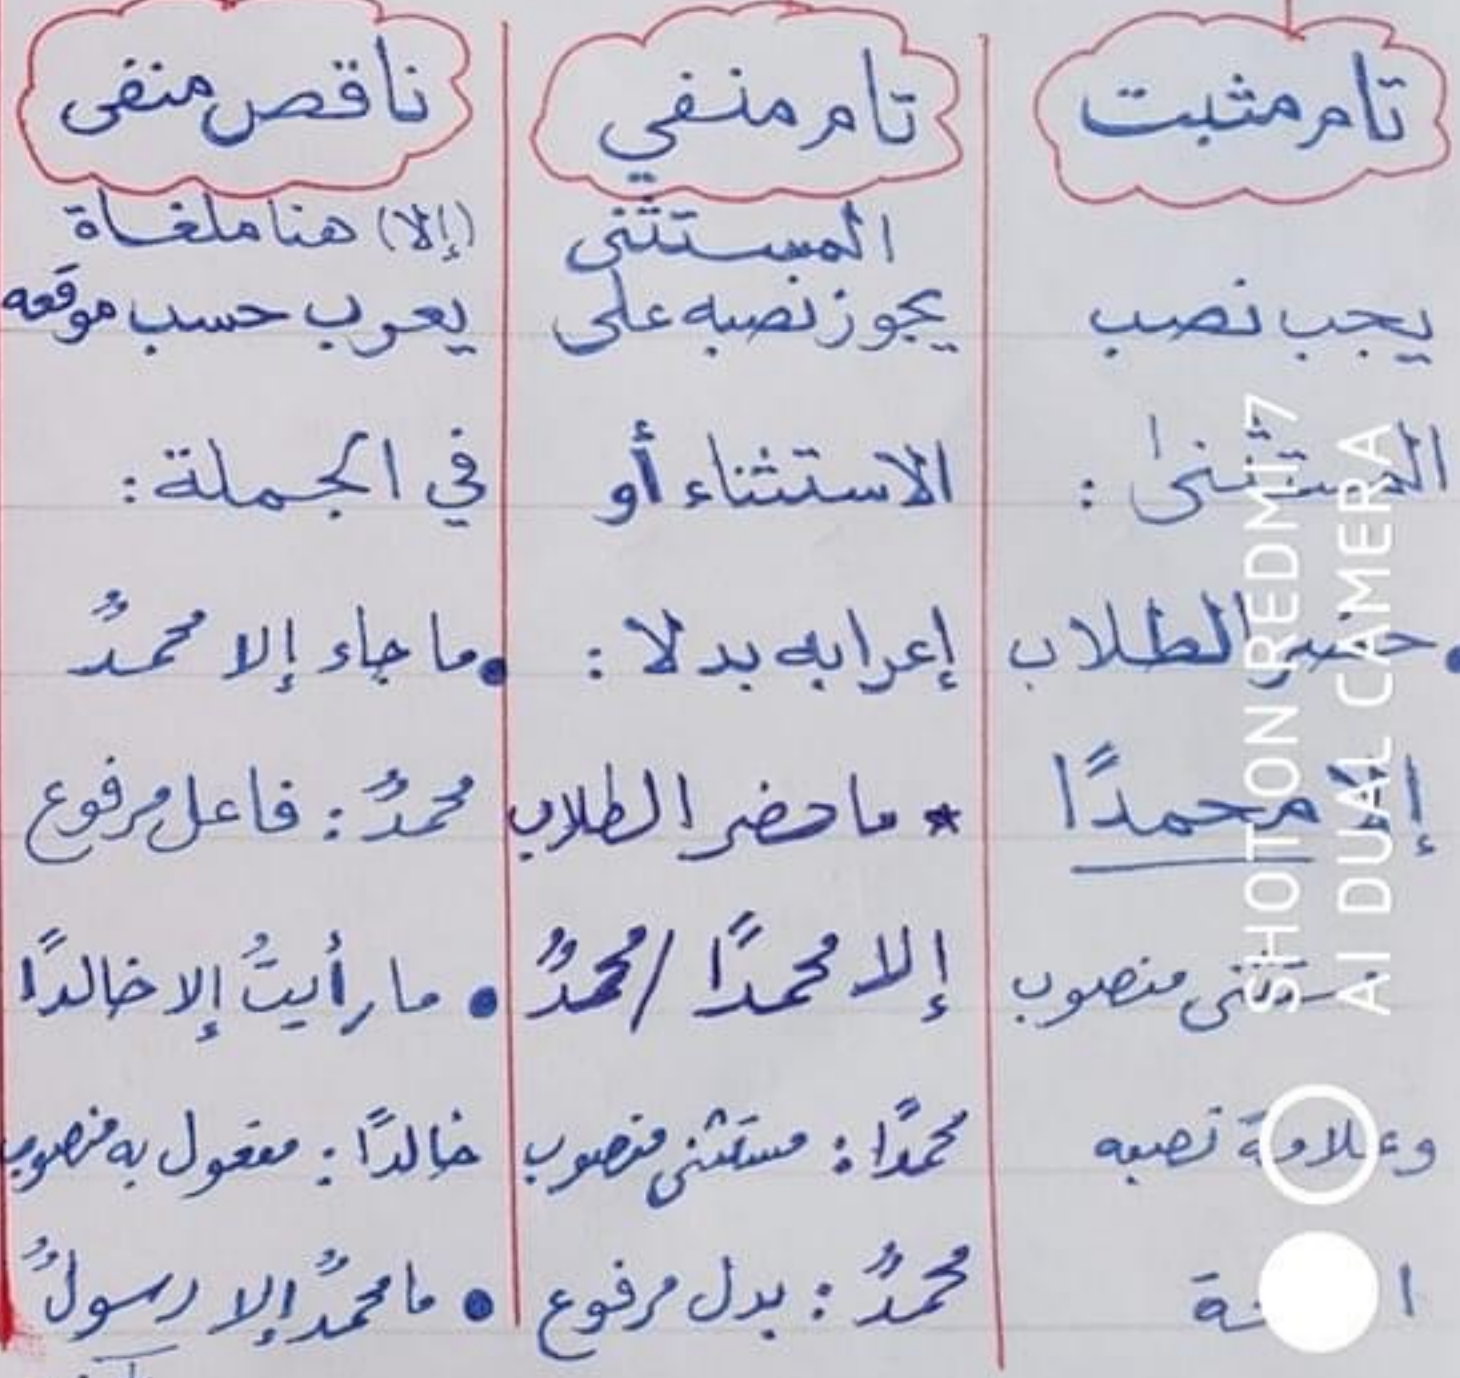 تام مثبت
يجب نصب
المستثنى :
• حضر الطلاب
إلا محمدًا
مستثنى منصوب
وعلامة نصبه
تام منفي
المستثنى
يجوز نصبه على
الاستثناء أو
إعرابه بدلا :
* ما حضر الطلاب
إلا محمدًا / محمدٌ
محمدًا : مستثنى منصوب
محمدٌ : بدل مرفوع
ناقص منفى
(إلا) هنا ملغاة
يعرب حسب موقعه
في الجملة :
• ما جاء إلا محمدٌ
محمدٌ : فاعل مرفوع
• ما رأيتُ إلا خالدًا
خالدًا : مفعول به منصوب
• ما محمدٌ إلا رسولٌ
SHOT ON REDMI 7
AI DUAL CAMERA